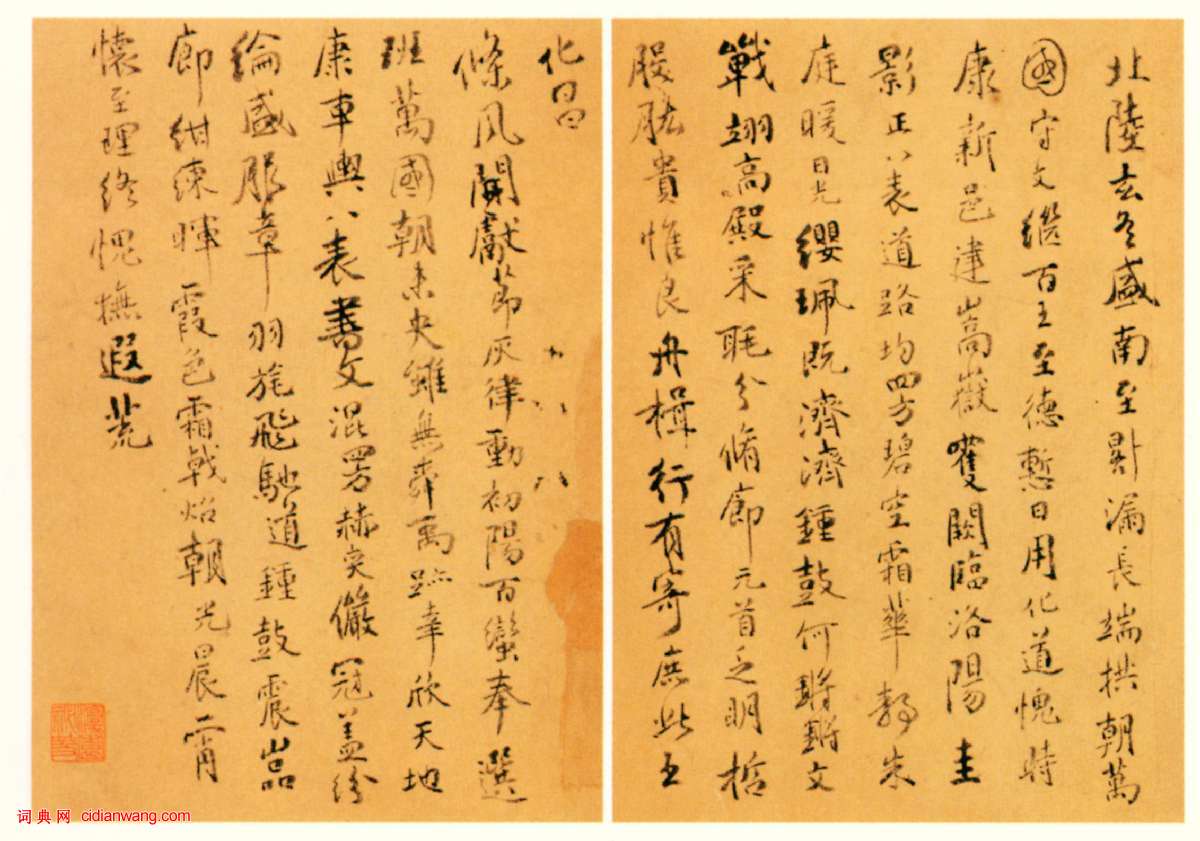 北陸玄冬盛南至晷漏長端拱朝萬
國守文繼百王至德慙日用化道愧時
康新邑建嵩嶽雙闕臨洛陽圭
影正八表道路均四方碧空霜華靜朱
庭暖日光纓珮既濟濟鍾鼓何鏘鏘文
戟翊高殿采毦分脩廊元首乏明哲
股肱貴惟良舟楫行有寄庶此王
化昌
條風開獻節灰律動初陽百蠻奉選
班萬國朝未央雖無舜禹跡幸欣天地
康車輿八表書文混四方赫奕儼冠蓋紛
綸盛服章羽旄飛馳道鍾鼓震嵒
廊組練暉霞色霜戟炤朝光晨宵
懷至理終愧撫遐荒
词典网 cidianwang.com